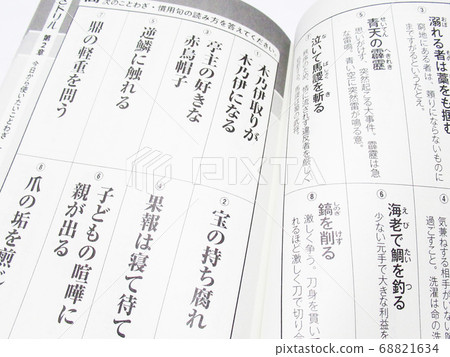 次のことわざ・慣用句の読み方を答えてください
木乃伊取りが
木乃伊になる
亭主の好きな
赤烏帽子
逆鱗に触れる
鼎の軽重を問う
宝の持ち腐れ
果報は寝て待て
子どもの喧嘩に
親が出る
爪の垢を煎じ
第2章
今日から使いたいことわざ
溺れる者は藁をも掴む
窮地にある者は、頼りにならないものに
までするというたとえ。
青天の霹靂
思いがけず、突然起こる大事件。霹靂は急
な雷鳴。青い空に突然雷が鳴る意。
泣いて馬謖を斬る
気兼ねする相手がいない
過ごすこと。洗濯は命の洗
海老で鯛を釣る
少ない元手で大きな利益を
鎬を削る
激しく争う。刀身を貫いて
れるほど激しく刀で切り合
PIXTA
68821634